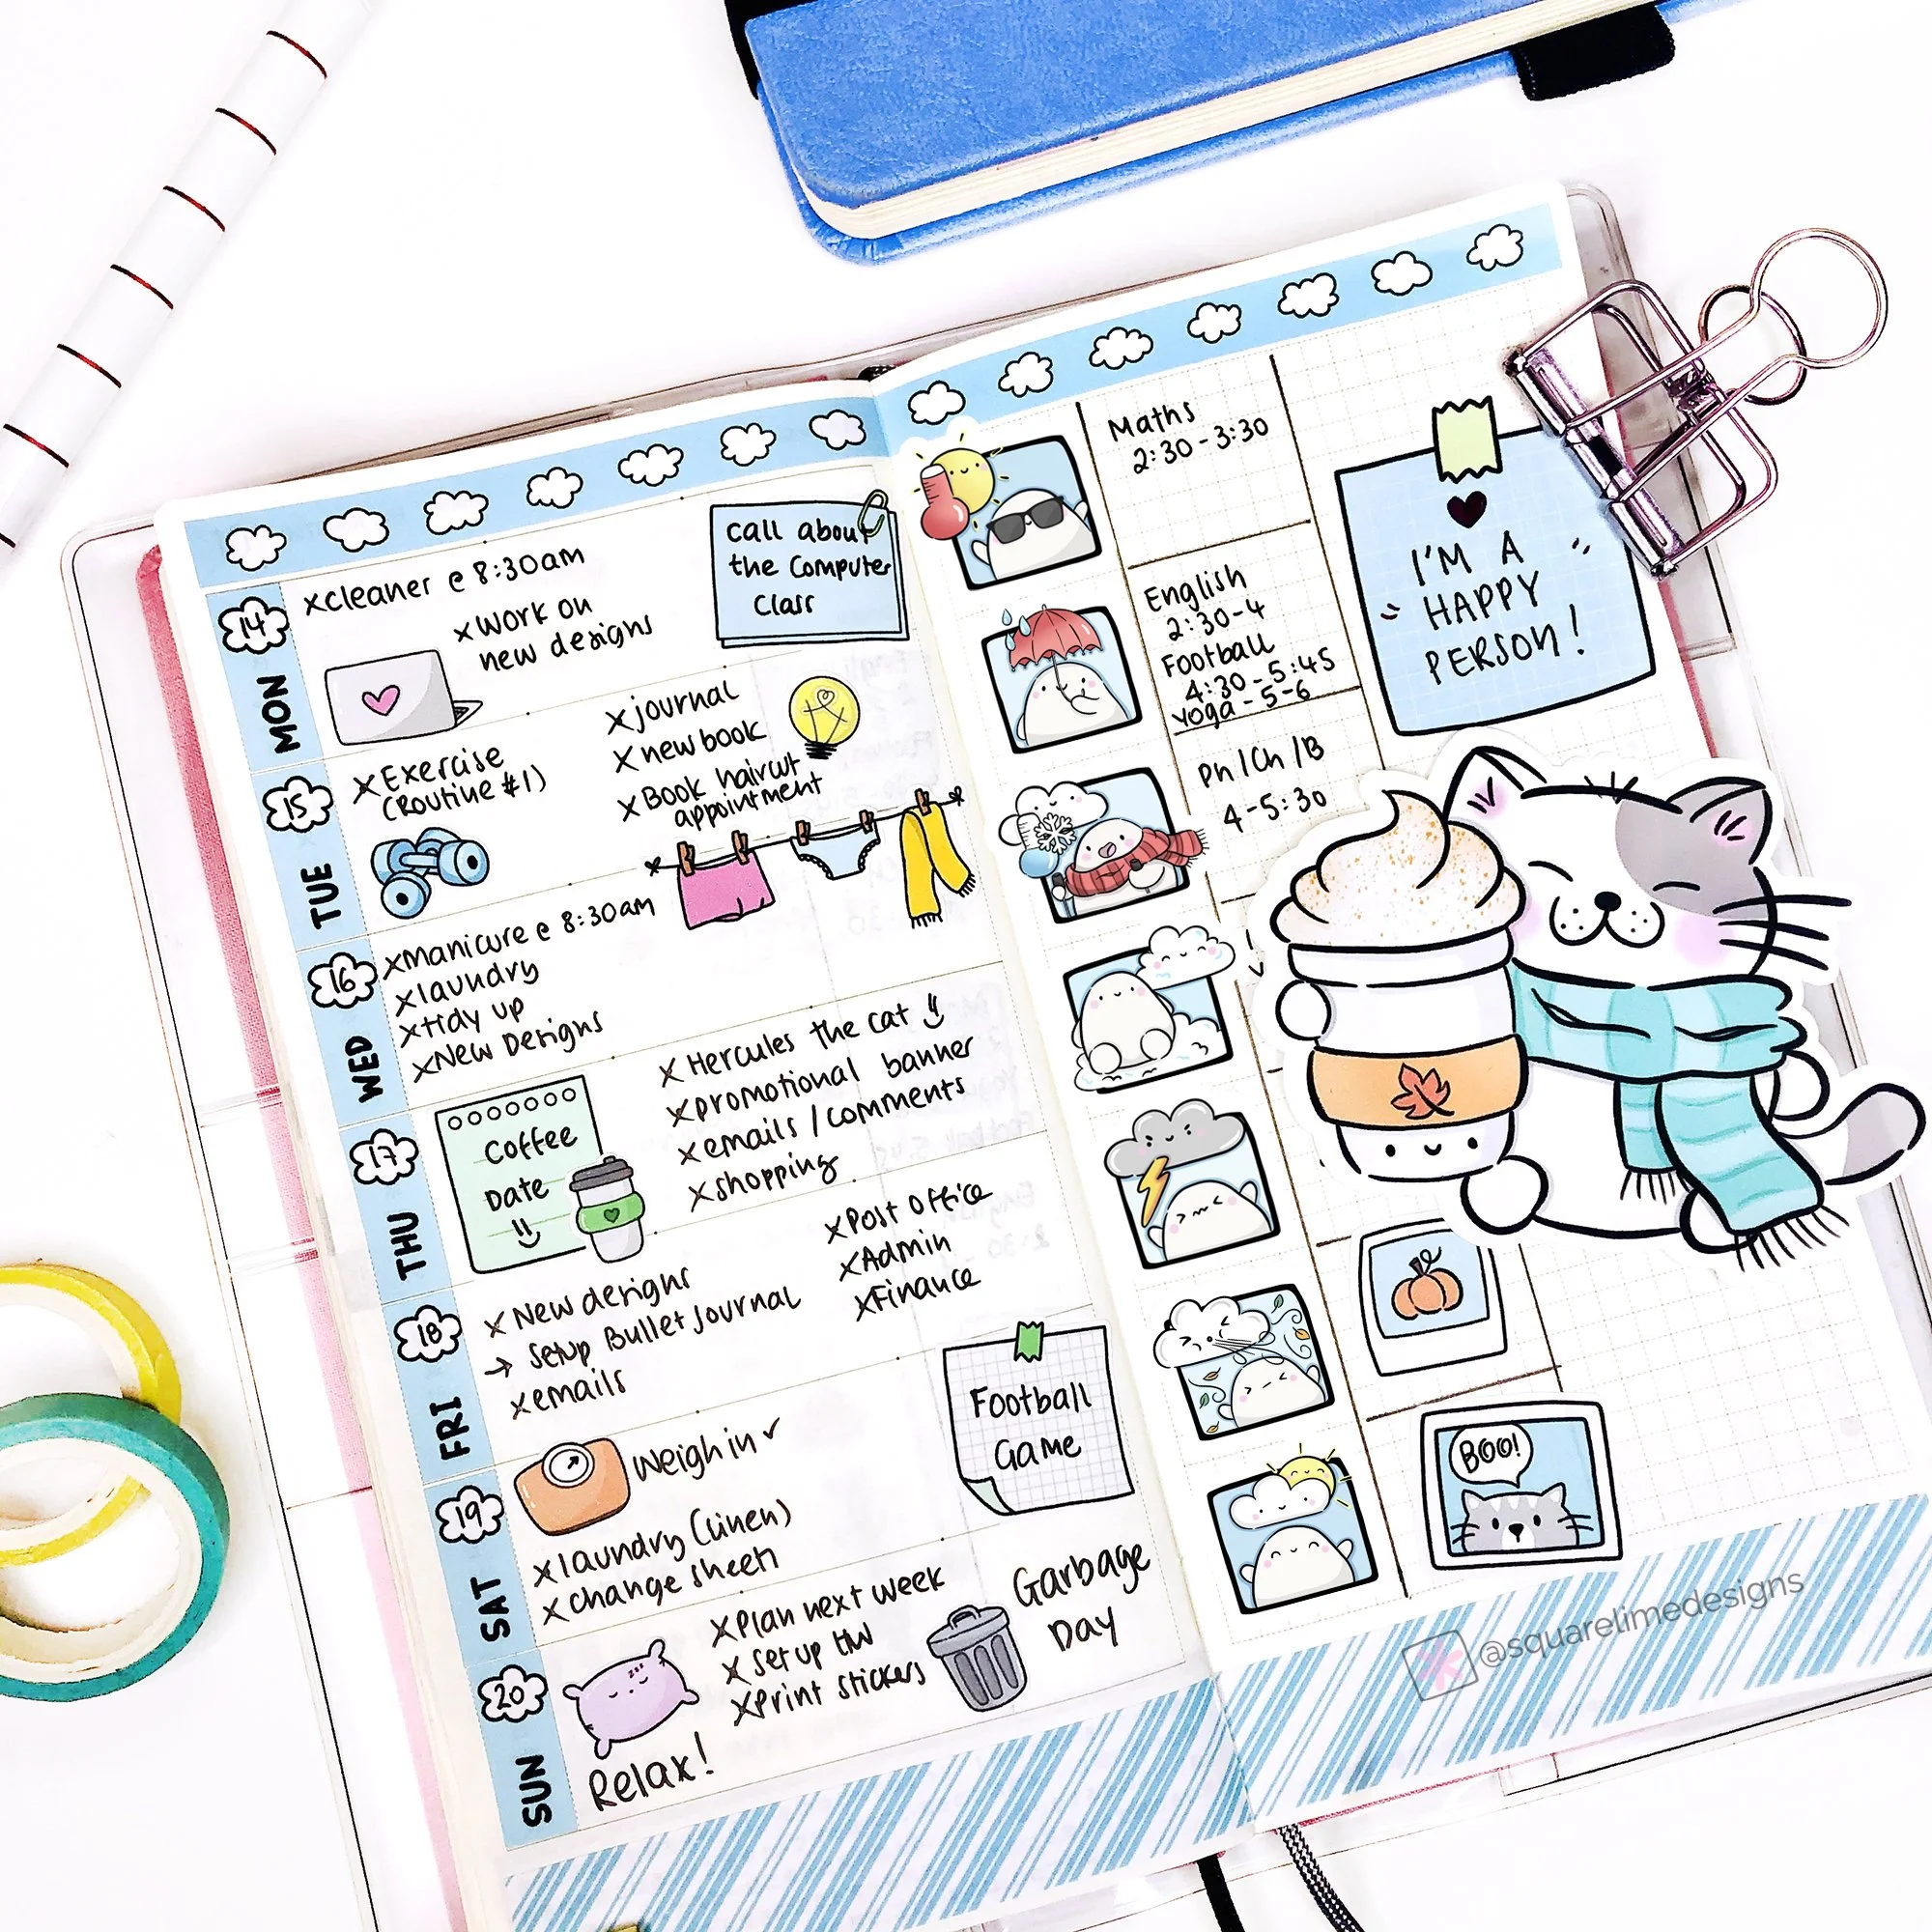 xcleaner @ 8:30am
x Work on
new designs
call about
the Computer
Class
14
MON
x Exercise
(Routine #1)
x journal
x new book
x Book haircut
appointment
15
TUE
xManicure @ 8:30am
xlaundry
xtidy up
xNew Designs
16
WED
Coffee
Date
x Hercules the cat
xpromotional banner
xemails / comments
xshopping
17
THU
x New designs
→ Setup Bullet Journal
xemails
xPost Office
xAdmin
xFinance
18
FRI
Weigh in ✓
xlaundry (Linen)
xchange sheets
Football
Game
19
SAT
Relax!
xPlan next week
x set up HW
xPrint stickers
Garbage
Day
20
SUN
Maths
2:30-3:30
English
2:30-4
Football
4:30-5:45
Yoga - 5-6
Ph/Ch/B
4-5:30
I'M A
HAPPY
PERSON!
BOO!
@squarelimedesigns